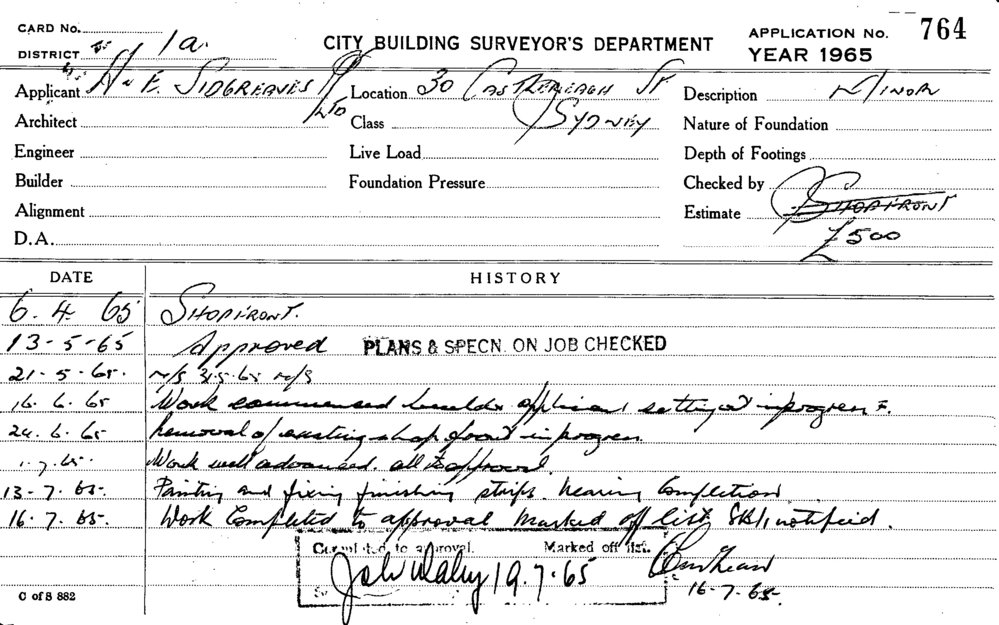 CARD No.
APPLICATION No. 764
DISTRICT 1a.
CITY BUILDING SURVEYOR'S DEPARTMENT
YEAR 1965
Applicant H & E. SIDGREAVES P/ LTD
Location 30 CASTLEREAGH ST SYDNEY
Description MINOR
Architect
Class
Nature of Foundation
Engineer
Live Load
Depth of Footings
Builder
Foundation Pressure
Checked by
Alignment
Estimate SHOPFRONT
D.A.
£500
DATE HISTORY
6. 4. 65 SHOPFRONT.
13-5-65 Approved PLANS & SPECN. ON JOB CHECKED
21-5-65. n/s 31.5.65 n/s
16. 6. 65 Work commenced setting out in progress
24. 6. 65 Removal of existing shop front in progress
1.7.65. Work well advanced. all to approval.
13-7.65- Painting and fixing finishing strips. nearing Completion
16.7.65. Work Completed to approval marked off list notified.
Completed to approval. Marked off list.
19.7.65
16-7-65-
C of S 882